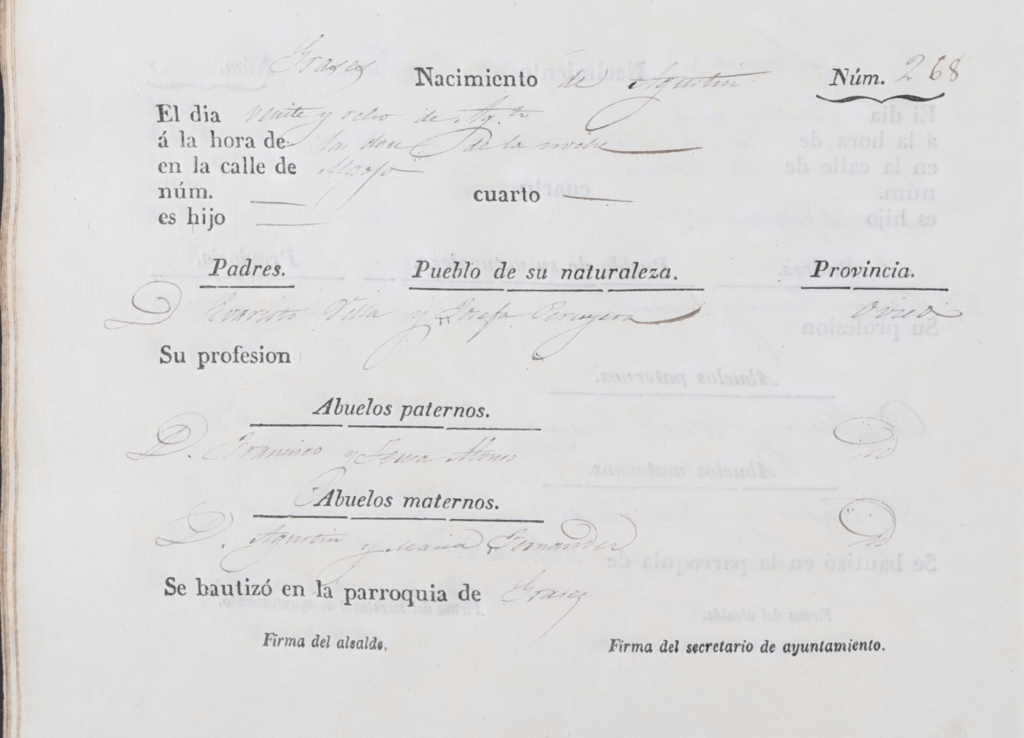 Grases Nacimiento de Agustin Núm. 268
El dia veinte y ocho de Ag.to
á la hora de la doce de la noche
en la calle de
núm. cuarto
es hijo
Padres. Pueblo de su naturaleza. Provincia.
D Evaristo Villa y Josefa Peruyera Oviedo
Su profesion
Abuelos paternos.
D. Francisco y id
Abuelos maternos.
D. Agustin y Maria Fernandez id
Se bautizó en la parroquia de Grases
Firma del alcalde. Firma del secretario de ayuntamiento.